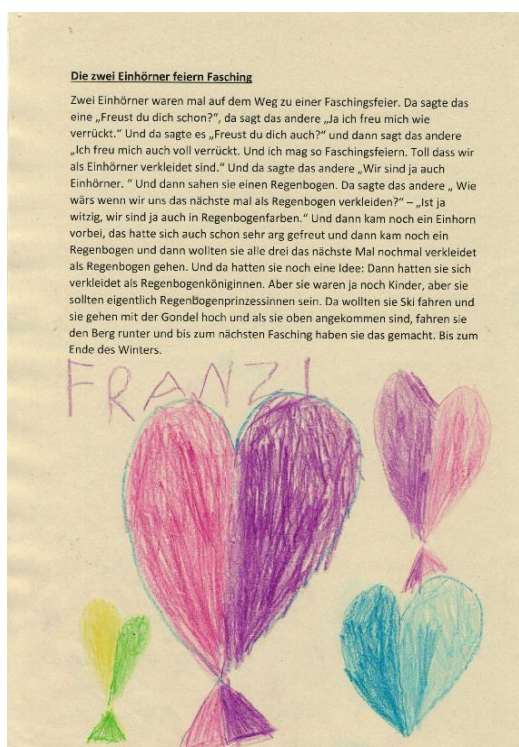 Die zwei Einhörner feiern Fasching
Zwei Einhörner waren mal auf dem Weg zu einer Faschingsfeier. Da sagte das
eine „Freust du dich schon?", da sagt das andere „Ja ich freu mich wie
verrückt." Und da sagte es „Freust du dich auch?" und dann sagt das andere
„Ich freu mich auch voll verrückt. Und ich mag so Faschingsfeiern. Toll dass wir
als Einhörner verkleidet sind." Und da sagte das andere „Wir sind ja auch
Einhörner. " Und dann sahen sie einen Regenbogen. Da sagte das andere „ Wie
wärs wenn wir uns das nächste mal als Regenbogen verkleiden?" – „Ist ja
witzig, wir sind ja auch in Regenbogenfarben." Und dann kam noch ein Einhorn
vorbei, das hatte sich auch schon sehr arg gefreut und dann kam noch ein
Regenbogen und dann wollten sie alle drei das nächste Mal nochmal verkleidet
als Regenbogen gehen. Und da hatten sie noch eine Idee: Dann hatten sie sich
verkleidet als Regenbogenköniginnen. Aber sie waren ja noch Kinder, aber sie
sollten eigentlich Regenbogenprinzessinnen sein. Da wollten sie Ski fahren und
sie gehen mit der Gondel hoch und als sie oben angekommen sind, fahren sie
den Berg runter und bis zum nächsten Fasching haben sie das gemacht. Bis zum
Ende des Winters.
FRANZI